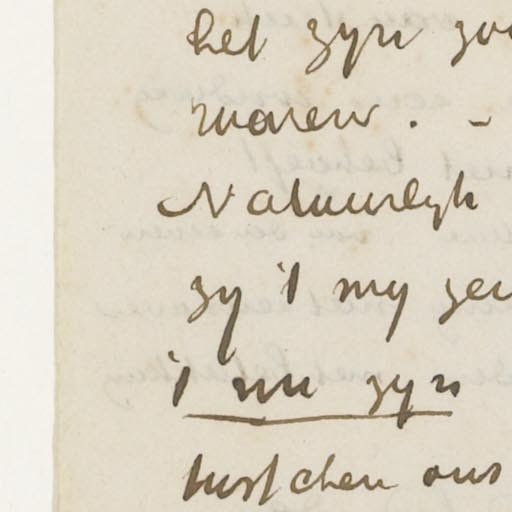 het zyn
waren. -
Natuurlyk
zy 't my
't nu zyn
tusschen ons